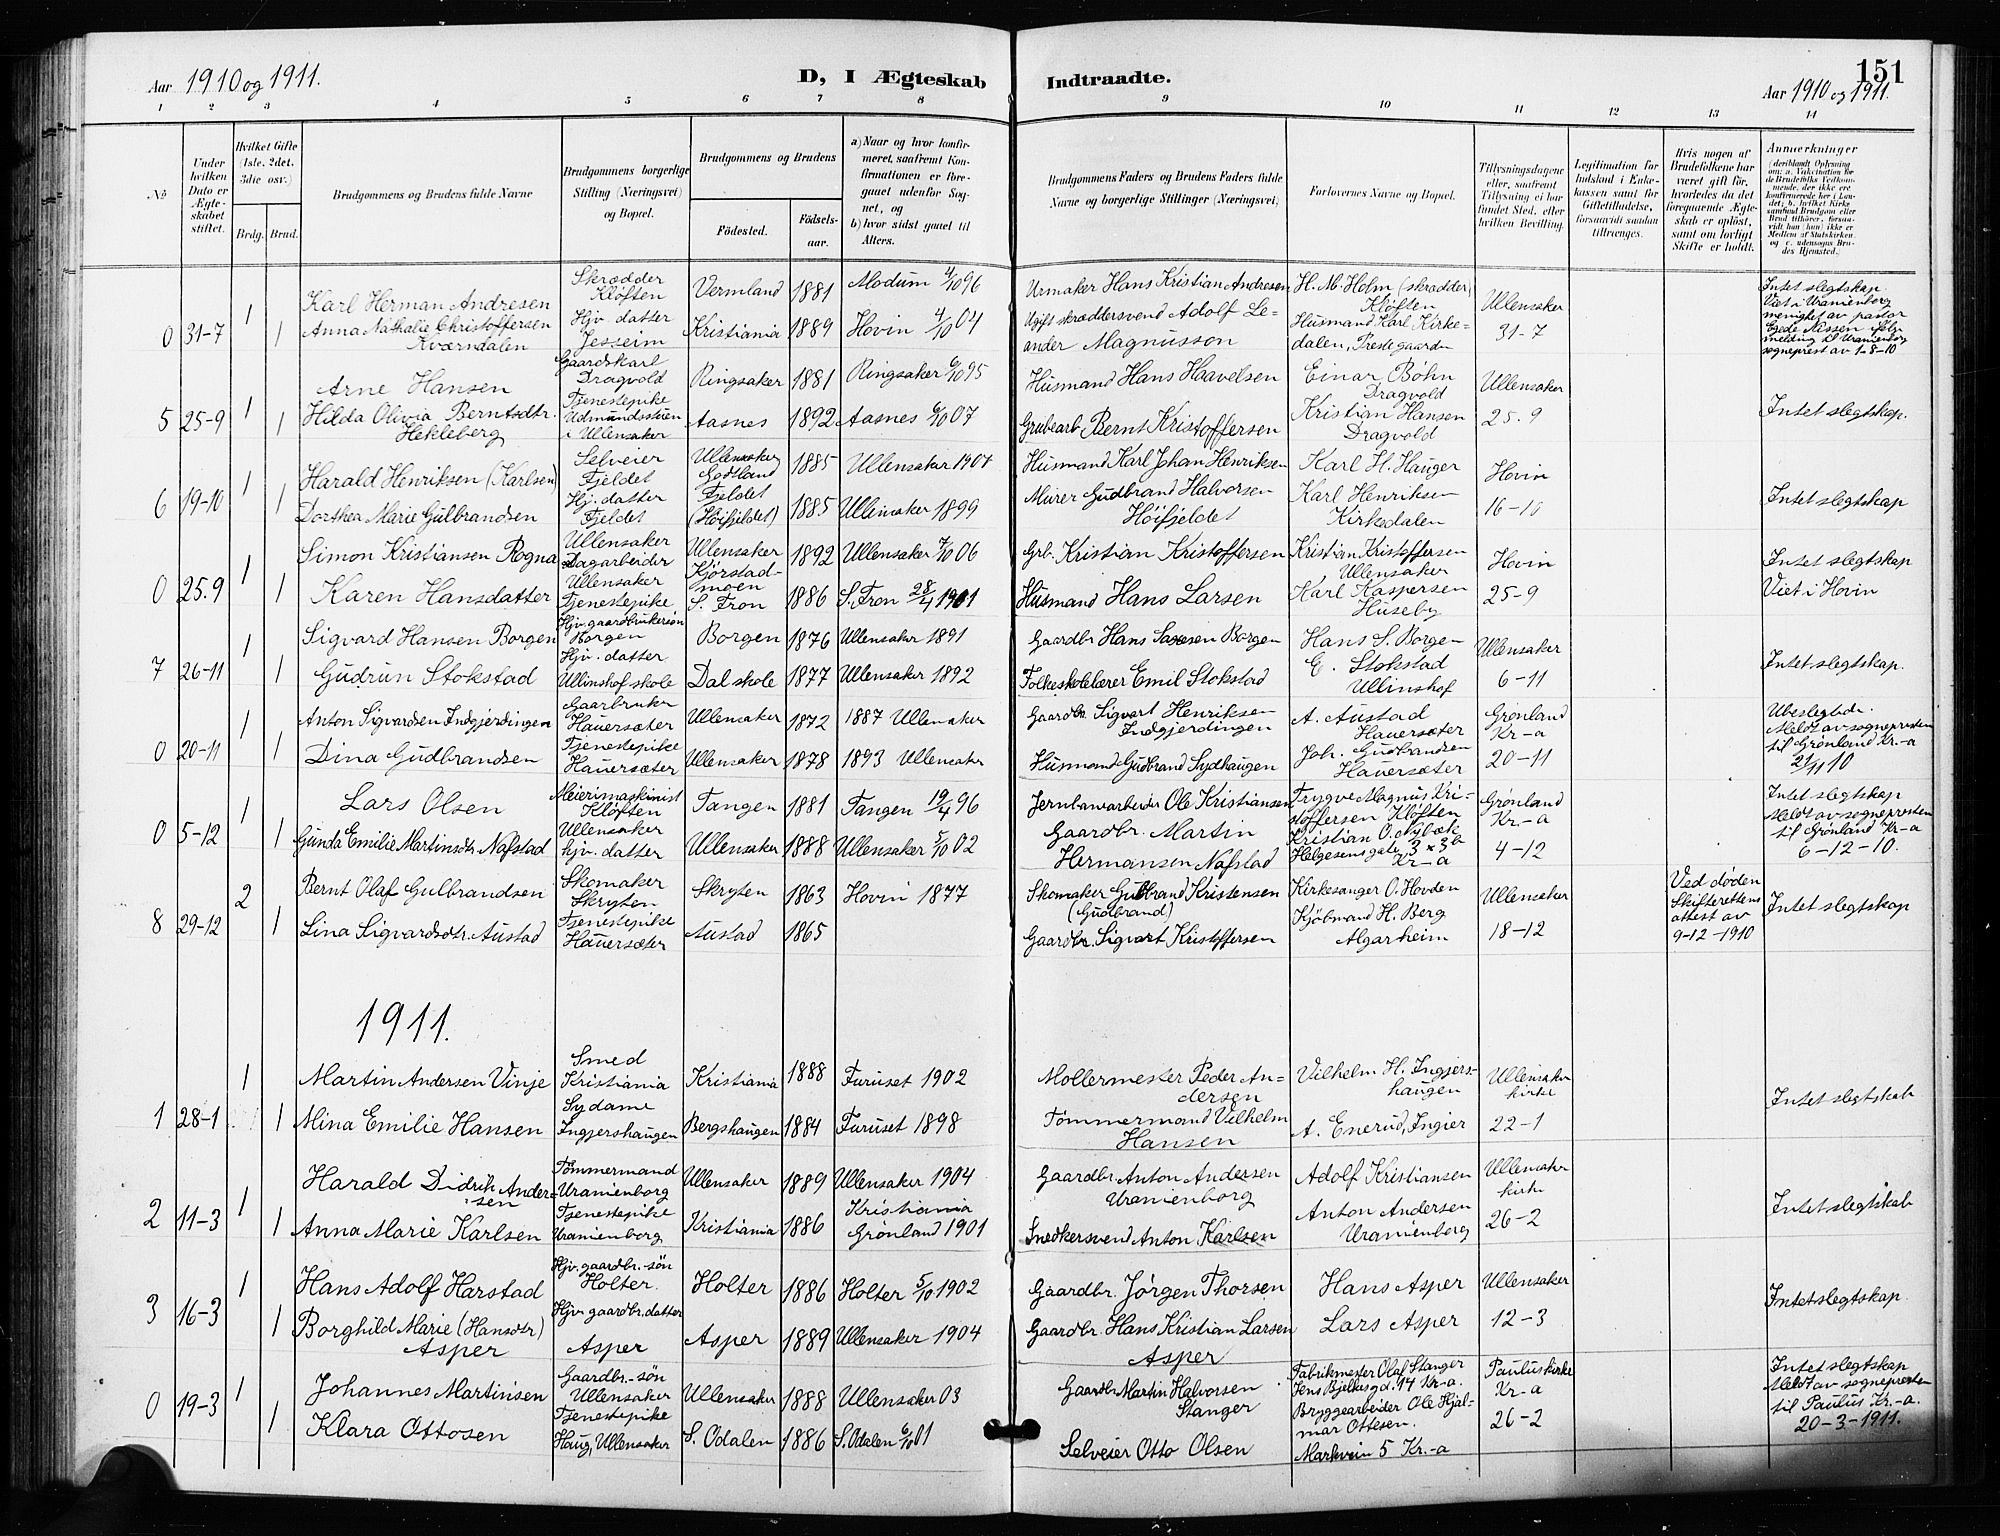 151
Aar 1910 og 1911.
D, I Ægteskab Indtraadte.
Aar 1910 og 1911.
1 2 3 4 5 6 7 8 9 10 11 12 13 14
No
Under hvilken Dato er Ægteskabet stiftet.
Hvilket Gifte (1ste, 2det, 3die osv.)
Brdg. Brud.
Brudgommens og Brudens fulde Navne
Brudgommens borgerlige Stilling (Næringsvei) og Bopæl.
Brudgommens og Brudens
Fødested. Fødselsaar.
a) Naar og hvor konfirmeret, saafremt Konfirmationen er foregaaet udenfor Sognet, og
b) hvor sidst gaaet til Alters.
Brudgommens Faders og Brudens Faders fulde Navne og borgerlige Stillinger (Næringsvei)
Forlovernes Navne og Bopæl.
Tillysningsdagene eller, saafremt Tillysning ei har fundet Sted, efter hvilken Bevilling.
Legitimation for Indskud i Enkekassen samt for Giftetilladelse, forsaavidt saadan tiltrænges.
Hvis nogen af Brudefolkene har været gift før, hvorledes da det foregaaende Ægteskab er opløst, samt om lovligt Skifte er holdt.
Anmerkninger
0 31-7 1 Karl Herman Andresen Skrædder Kløften Vermland 1881 Modum 4/10 96 Urmaker Hans Kristian Andresen H. M. Holm (skrædder) Kløften Ullensaker 31-7
1 Anna Nathalie Christoffersen Kværndalen Hjv. datter Jesseim Kristiania 1889 Hovin 4/10 04 Ugift skræddersvend Adolf Leander Magnusson Husmand Karl Kirkedalen, Prestegaarden
Intet slegtskap Viet i Uranienborg menighet av pastor Egede Nissen ifølge melding til Uranienborg sogneprest av 1-8-10
5 25-9 1 Arne Hansen Gaardskarl Dragvold Ringsaker 1881 Ringsaker 6/10 95 Husmand Hans Haavelsen Einar Bøhn Dragvold Ullensaker 25.9
1 Hilda Olivia Berntsdtr. Hekleberg Tjenestepike Udmundsstuen i Ullensaker Aasnes 1892 Aasnes 6/10 07 Grubearb Bernt Kristoffersen Kristian Hansen Dragvold Intet slegtskap.
6 19-10 1 Harald Henriksen (Karlsen) Selveier Fjeldet Ullensaker Gotland 1885 Ullensaker 1907 Husmand Karl Johan Henriksen Karl H. Hauger Hovin 16-10
1 Dorthea Marie Gulbrandsen Hj. datter Fjeldet Fjeldet (Höifjeldet) 1885 Ullensaker 1899 Murer Gudbrand Halvorsen Höifjeldet Karl Henriksen Kirkedalen Intet slegtskap
0 25.9 1 Simon Kristiansen Rogna Ullensaker Dagarbeider Ullensaker 1892 Ullensaker 7/10 06 Grb. Kristian Kristoffersen Kristian Kristoffersen Ullensaker Hovin 25-9 Intet slegtskap
1 Karen Hansdatter Ullensaker Tjenestepike Kjørstadmoen S. Fron 1886 S. Fron 28/4 1901 Husmand Hans Larsen Karl Kaspersen Huseby Viet i Hovin
7 26-11 1 Sigvard Hansen Borgen Hjv. gaardbrukersøn Borgen Borgen 1876 Ullensaker 1891 Gaardbr Hans Borgen Hans S. Borgen Ullensaker 6-11
1 Gudrun Stokstad Hjv. datter Ullinshof skole Dal skole 1877 Ullensaker 1892 Folkeskolelærer Emil Stokstad E. Stokstad Ullinshof Intet slegtskap.
0 20-11 1 Anton Sigvardsen Indgjerdingen Gaarbruker Hauersæter Ullensaker 1872 1887 Ullensaker Gaardbr. Sigvart Henriksen Indgjerdingen A. Austad Hauersæter Grønland Kr-a 20-11
1 Dina Gudbrandsen Tjenestepike Hauersæter Ullensaker 1878 1893 Ullensaker Husmand Gudbrand Sydhaugen Joh. Gudbrandsen Hauersæter
Ubeslegtede. Meldt av sognepresten til Grønland Kr.-a 21/11 10
0 5-12 1 Lars Olsen Meierimaskinist Kløften Tangen 1881 Tangen 19/4 96 Jernbanearbeider Ole Kristiansen Trygve Magnus Kristoffersen Kløften Grønland Kr-a 4-12
1 Gunda Emilie Martinsdtr Nafstad Ullensaker hjv. datter Ullensaker 1888 Ullensaker 5/10 02 Gaardbr. Martin Hermansen Nafstad Kristian O. Nybæk Helgesensgate Kr-a
Intet slegtskap Meldt av sognepresten til Grønland Kr-a 6-12-10.
8 29-12 2 Bernt Olaf Gulbrandsen Skomaker Skryten Skryten 1863 Hovin 1877 Skomaker Gudbrand Kristensen (Gudbrand) Kirkesanger O. Hovden Ullensaker 18-12
1 Lina Sigvardsdtr. Austad Tjenestepike Hauersæter Austad 1865 Gaardbr. Sigvart Kristoffersen Kjøbmand H. Berg Algarheim
Ved døden Skifterettens attest av 9-12-1910 Intet slegtskap
1911.
1 28-1 1 Martin Andersen Vinje Smed Kristiania Kristiania 1888 Furuset 1902 Mollermester Peder Andersen Vilhelm H. Ingjershaugen Ullensaker kirke 22-1
1 Mina Emilie Hansen Sydame Ingjershaugen Bergshaugen 1884 Furuset 1898 Tømmermand Vilhelm Hansen A. Enerud, Ingier Intet slegtskab
2 11-3 1 Harald Didrik Andersen Tømmermand Uranienborg Ullensaker 1889 Ullensaker 1904 Gaardbr. Anton Andersen Uranienborg Adolf Kristiansen Ullensaker kirke 26-2
1 Anna Marie Karlsen Tjenestepike Uranienborg Kristiania 1886 Kristiania Grønland 1901 Snedkersvend Anton Karlsen Anton Andersen Uranienborg Intet slegtskab
3 16-3 1 Hans Adolf Harstad Hjv. gaardbr.-søn Holter. Holter 1886 Holter 5/10 1902 Gaardbr. Jørgen Thorsen Hans Asper Ullensaker 12-3
1 Borghild Marie (Hansdtr) Asper Hjv. gaardbr. datter Asper Asper 1889 Ullensaker 1904 Gaardbr. Hans Kristian Larsen Asper Lars Asper Intet slegtskap
0 19-3 1 Johannes Martinsen Gaardbr.-søn Ullensaker Ullensaker 1888 Ullensaker 03 Gaardbr Martin Halvorsen Stanger Fabrikmester Olaf Stanger Jens Bjelkesgd. 14 Kr-a. Pauluskirke Kr-a 26-2
1 Klara Ottosen Tjenestepike Haug, Ullensaker S. Odalen 1886 S. Odalen 6/10 01 Selveier Otto Olsen Bryggearbeider Ole Hjalmar Ottesen. Markvein 5 Kr.-a
Intet slegtskap Meldt av sognepresten til Paulus Kr.-a. 20-3-1911.